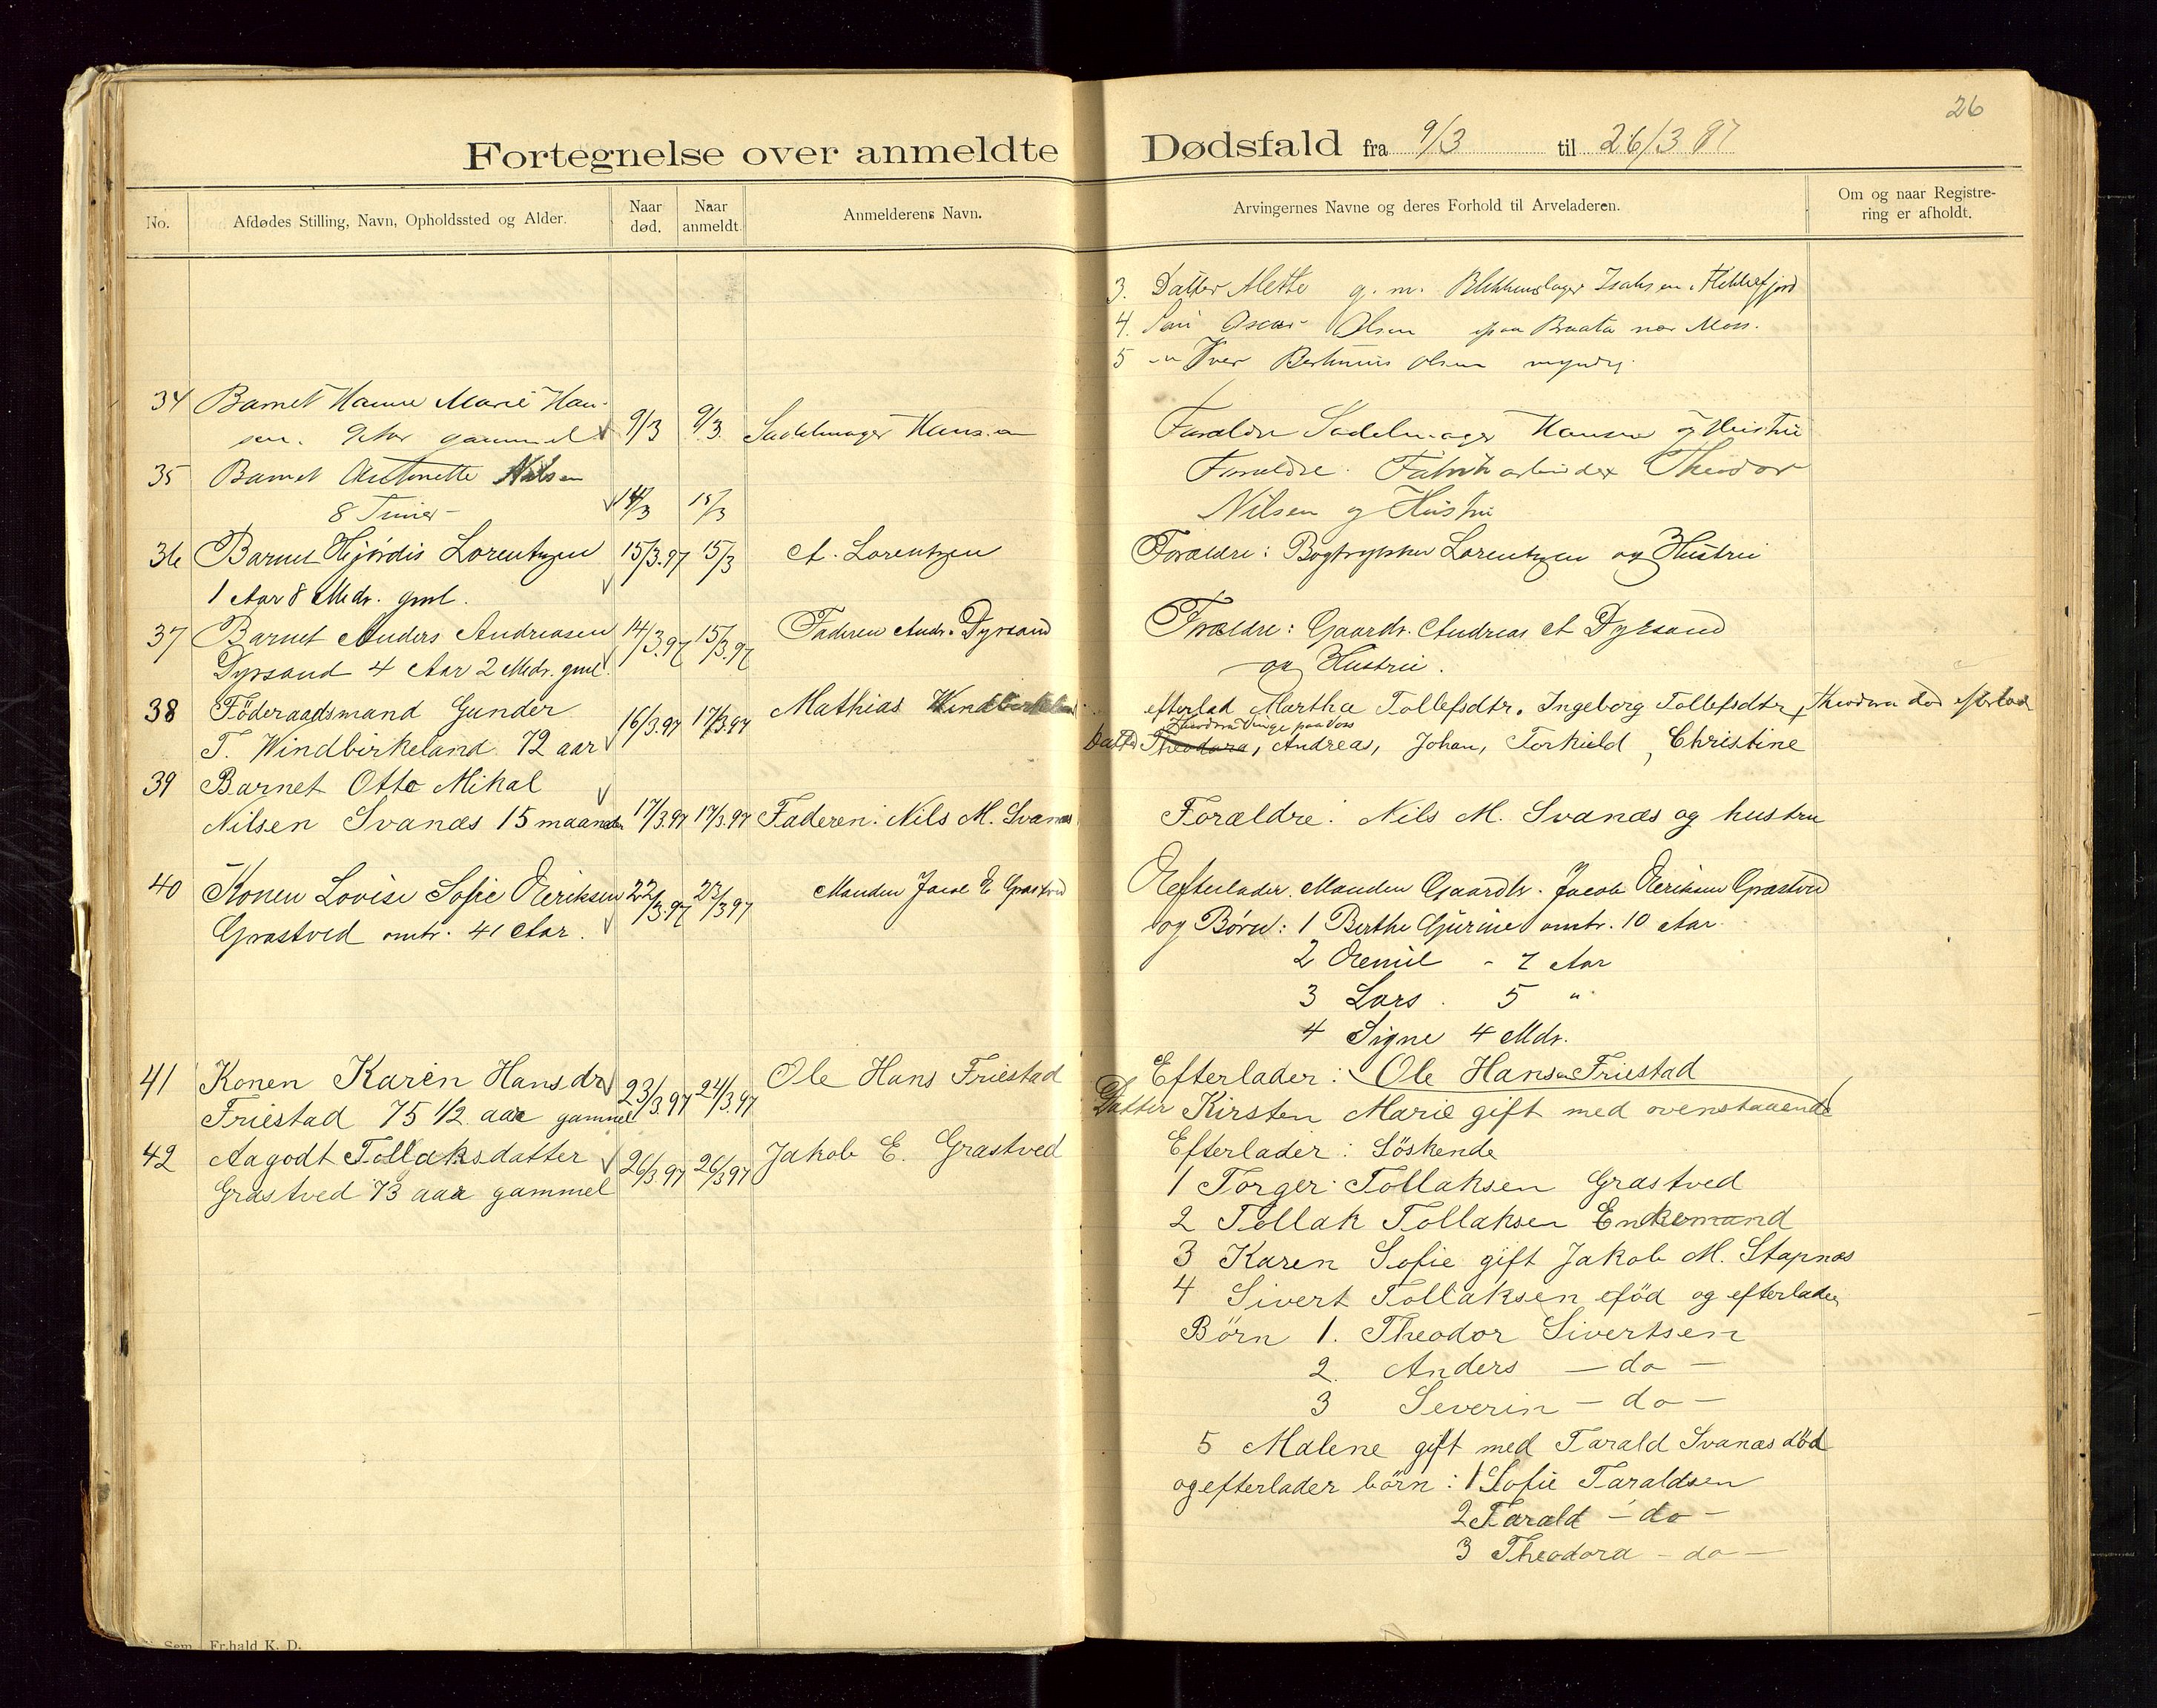 26
Fortegnelse over anmeldte Dødsfald fra 9/3 til 26/3 97
No.
Afdødes Stilling, Navn, Opholdssted og Alder.
Naar død.
Naar anmeldt.
Anmelderens Navn.
Arvingernes Navne og deres Forhold til Arveladeren.
Om og naar Registre-
ring er afholdt.
3. Datter Mette g. m. Blikkenslager Isaksen i Flekkefjord
4. Søn Oscar Olsen paa Braata nær Moss.
5 -"- Iver Olsen myndig.
34 Barnet Hanne Marie Han-
sen. 9 Aar gammel 9/3 9/3 Sadelmager Hansen
Forældre Sadelmager Hansen og Hustru
35 Barnet Antonette Nilsen
8 Timer 14/3 15/3
Forældre. Fabrikarbeider Theodor
Nilsen og Hustru
36 Barnet Hjørdis Lorentzen 15/3.97 15/3 A. Lorentzen
1 Aar 8 Mdr. gml.
Forældre: Bogtrykker Lorentzen og Hustru
37 Barnet Anders Andreasen 14/3.97 15/3.97 Faderen Andr. Dyrsand
Dyrsand 4 Aar 2 Mdr. gml.
Forældre: Gaardbr. Andreas A Dyrsand
og Hustru.
38 Föderaadsmand Gunder 16/3.97 17/3.97 Mathias Windbirkeland
T. Windbirkeland 72 aar
efterlad Martha Tollefsdtr. Ingeborg Tollefsdtr, Theodora død efterlad
Theodora Vinge paa Voss
Datter Theodora, Andreas, Johan, Torkild, Christine
39 Barnet Otto Mikal
Nilsen Svanæs 15 maaneder 17/3.97 17/3.97 Faderen: Nils M. Svanæs
Forældre: Nils M. Svanæs og hustru
40 Konen Lovise Sofie Eriksen 22/3.97 23/3 97 Manden Jacob E Grastved
Grastved omtr. 41 Aar.
Efterlader. Manden Gaardbr. Jacob Eriksen Grastved
og Børn: 1 Berthe Gurine omtr. 10 Aar
2 Emil - 7 Aar
3 Lars. 5 "
4 Signe 4 Mdr.
41 Konen Karen Hansdr 23/3.97 24/3.97 Ole Hans Friestad
Friestad 75 1/2 aar gammel
Efterlader: Ole Hansen Friestad
Datter Kirsten Marie gift med ovenstaaende
42 Aagodt Tollaksdatter 26/3.97 26/3 97 Jakob E. Grastved
Grastved 73 aar gammel
Efterlader: Söskende
1 Torger Tollaksen Grastved
2 Tollak Tollaksen Enkemand
3 Karen Sofie gift Jakob M. Stapnæs
4 Sivert Tollaksen död og efterlader
Börn 1. Theodor Sivertsen
2. Anders — do —
3 Severin — do —
5 Malene gift med Tarald Svanæs död
og efterlader börn: 1 Sofie Taraldsen
2 Tarald — do —
3 Theodora — do —
Sem Fr.hald K. D.